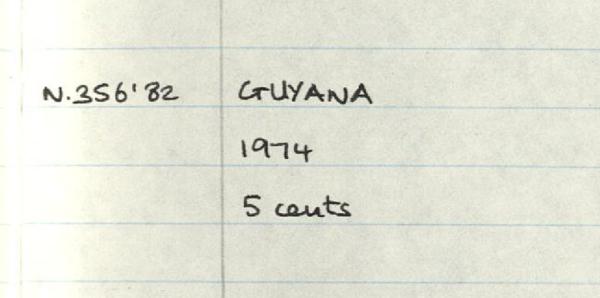 N.356'82 GUYANA
1974
5 cents